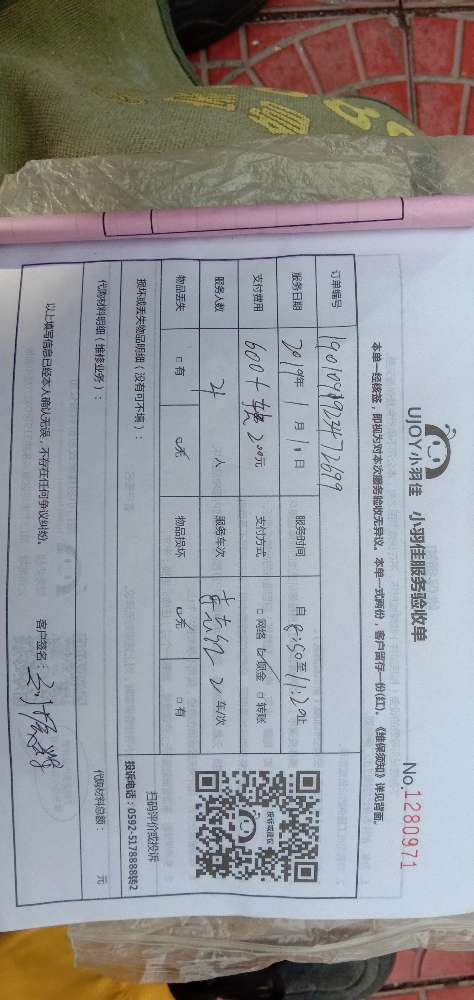 UJOY小羽佳 小羽佳服务验收单
No.1280971
本单一经核签，即视为对本次服务验收无异议。本单一式两份，客户留存一份(红)。《维保须知》详见背面。
订单编号
服务日期 2019年 1月 11日 服务时间 自 8:50 至 11:20 止
支付费用 600+ 200元 支付方式 □网络 ☑现金 □转账
服务人数 4 人 服务车次 2 车/次
物品丢失 □有 ☑无 物品损坏 ☑无 □有
损坏或丢失物品明细（没有可不填）：
扫码评价或投诉
投诉电话：0592-5178888转2
代购材料明细（维修业务）：
代购材料总额： 元
以上填写信息已经本人确认无误，不存在任何争议纠纷。
客户签名：